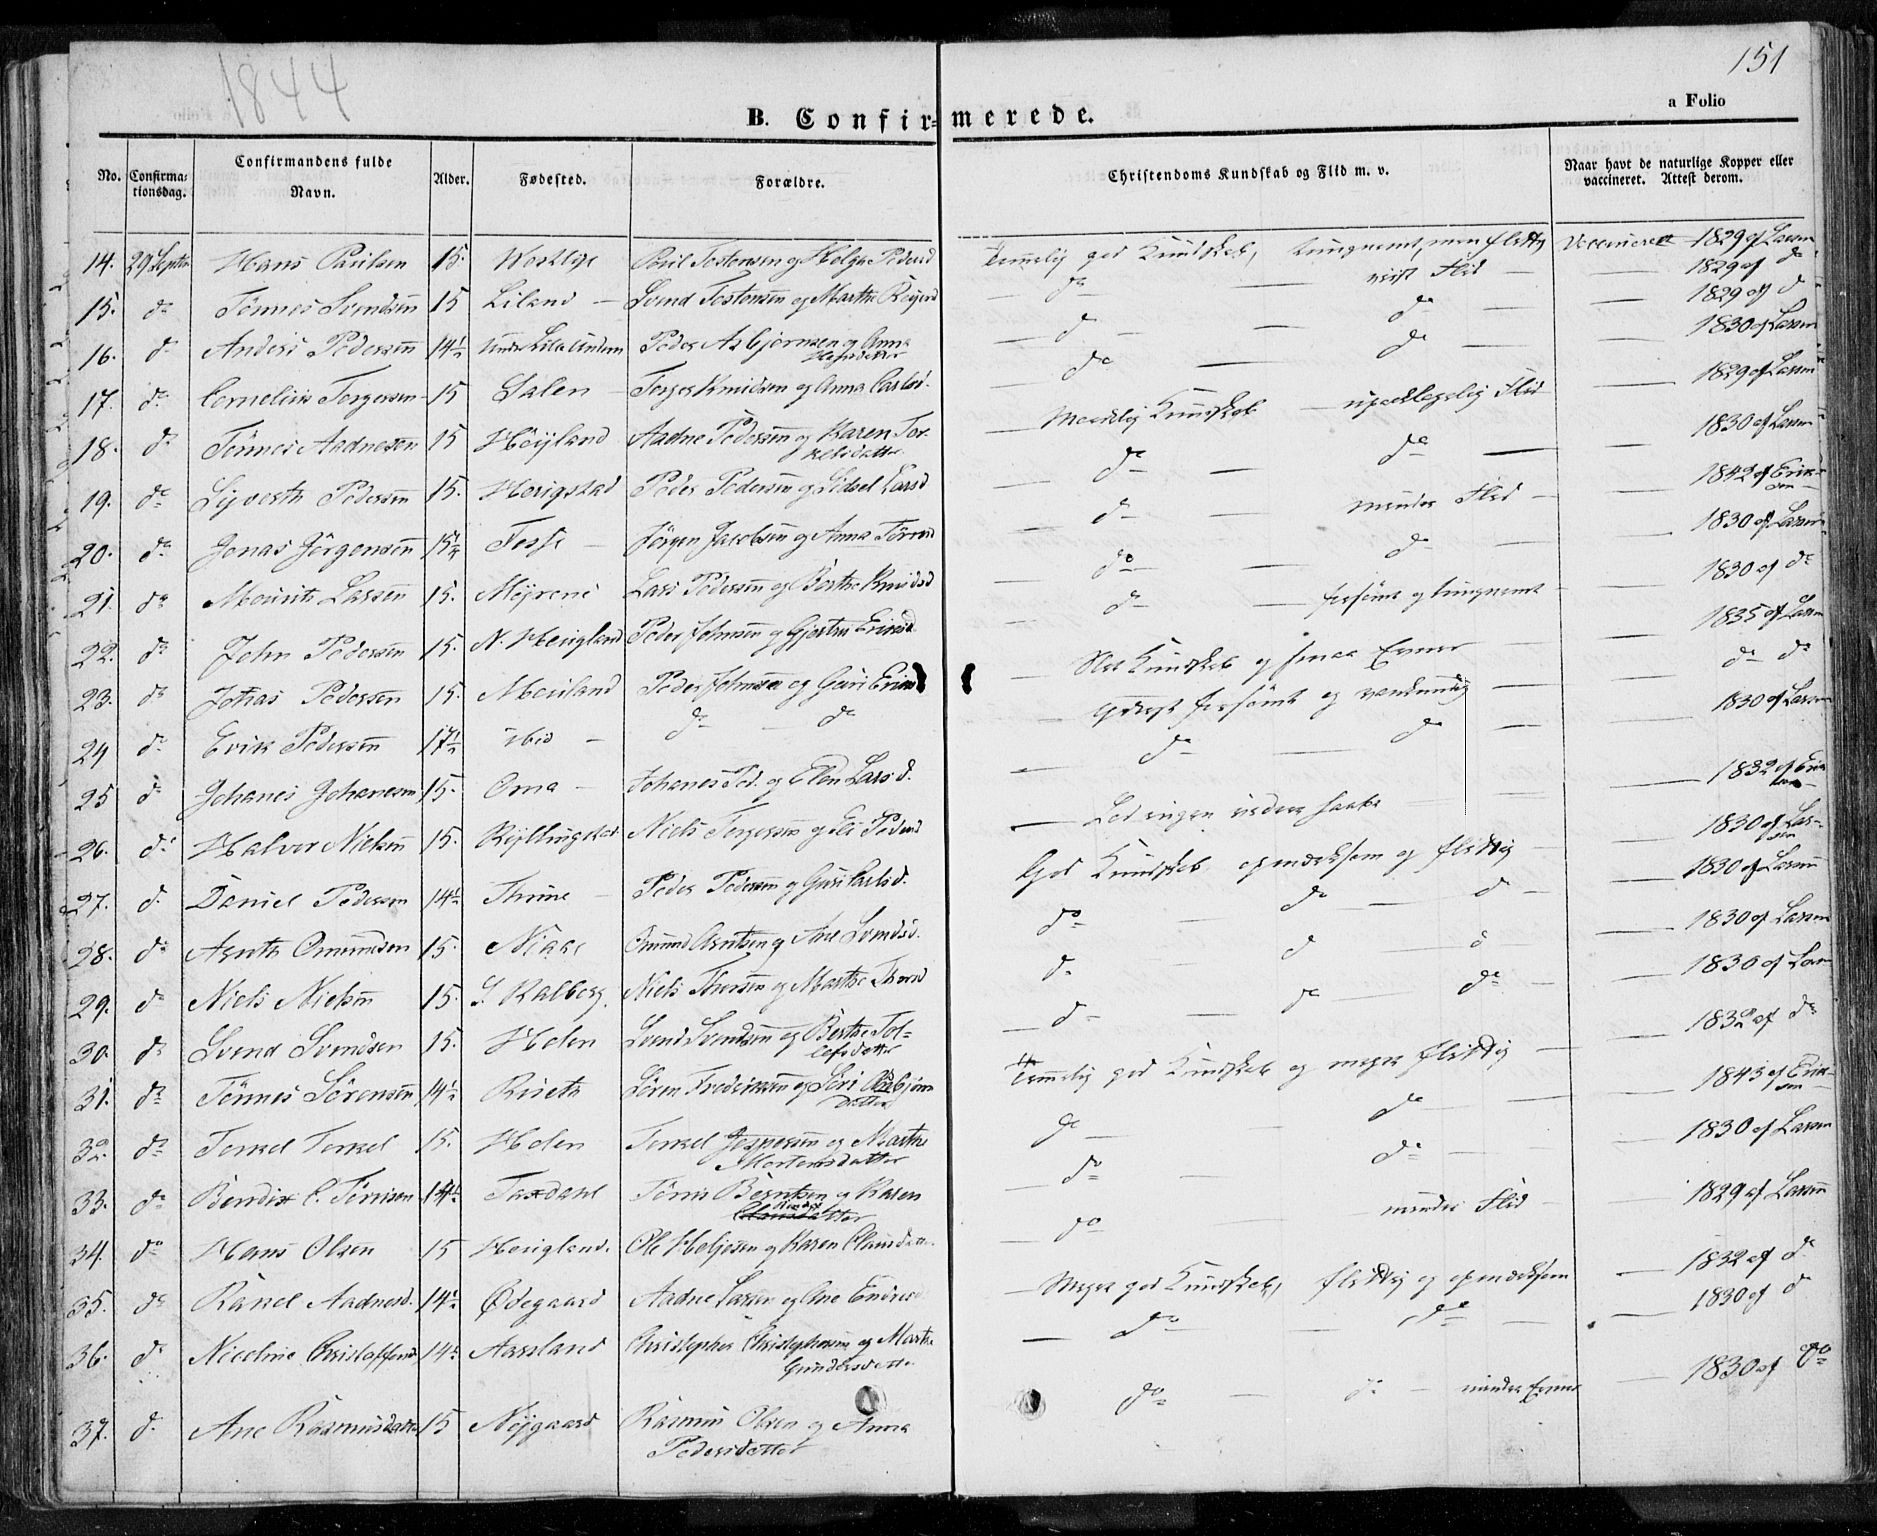 1844
151
a Folio
B. Confirmerede.
No. Confirmationsdag. Confirmandens fulde Navn. Alder. Fødested. Forældre. Christendoms Kundskab og Flid m. v. Naar havt de naturlige Kopper eller vaccineret. Attest derom.
14. 29 Septbr Hans Paulsen 15. Poul Tostensen og Helga Pedersd Temmelig god Kundskab, tungnemt, men flittig Vaccineret 1829 af Larsen
15. do Tønnes Svendsen 15 Liland Svend Tostensen og Marthe do viist Flid 1829 af do
16. do Anders Pedersen 14½ Peder Asbjørnsen og Anna do do 1829 af do
17. do Cornelius Torgersen 15 Salen Torger Knudsen og Anna Carlsd. do do 1830 af Larsen
18. do Tönnes Aadnesen 15 Höyland Aadne Pedersen og Karen Torkelsdatter Maadelig Kundskab upaaklagelig Flid 1829 af Larsen
19. do Syverth Pedersen 15. Herigstad Peder Pedersen og Sidsel Larsd do do 1830 af Larsen
20. do Jonas Jörgensen 15¼ Fosse Jörgen Jacobsen og Anna do mindre Flid 1842 af Eriksen
21. do Mauritz Larsen 15. Myrene Lars Pedersen og Berthe Knudsd do do 1830 af Larsen
22. do John Pedersen 15. N. Herigland Peder Johnsen og Gjertru Ericsd do forsömt og tungnemt 1830 af do
23. do Johas Pedersen 15. Mauland Peder Johnsen og Guri Erics Slet Kundskab og smaa Evner 1835 af Larsen
24 do Erik Pedersen 17½ ibid do do yderst forsömt og vankundig do do
25 do Johanes Johanesen 15. Oma Johanes Ped. og Elen Larsd. do do 1830 af Larsen
26. do Halvor Nielsen 15. Kyllingstad Niels Torgersen og Eli Pedersd Lod ingen videre haabe 1832 af Eriksen
27. do Daniel Pedersen 14½ Thime Peder Pedersen og Guri Carlsd. God Kundskab, opmærksom og flittig 1830 af Larsen
28. do Arnth Omundsen 15. Njaae Omund Arntsen og Ane Svendsd. do do do 1830 af Larsen
29. do Niels Nielsen 15. S. Kalberg. Niels Thorsen og Marthe Thorsd do do do 1830 af Larsen
30. do Svend Svendsen 15. Holen Svend Svendsen og Berthe Tollefsdatter do do do 1830 af Larsen
31. do Tönnes Sörensen 14½ Sören Fredriksen og Siri Asbjörnsdatter Temmelig god Kundskab og megen flittig 1832 af do
32. do Torkel Torkel 15. Holen Torkel Jespersen og Marthe Mortensdatter do do 1843 af Eriksen
33. do Bendix C. Tönnisen 14½ Taxdahl Tönnis Berntsen og Karen Clausdatter do do 1830 af Larsen
34. do Hans Olsen 15 Herigland. Ole Heljesen og Karen Clausdatter do mindre Flid 1829 af Larsen
35. do Ranel Aadnesd. 14½ Ødegaard Aadne Larsen og Ane Endresd Meget god Kundskab, flittig og opmærksom 1832 af do
36. do Nicoline Christoffersd 14½ Aarsland Christopher Christophersen og Marthe Gundersdatter do do 1830 af do
37. do Ane Rasmusdatter 15 Nygaard Rasmus Olsen og Anna Pedersdatter do do mindre Evner 1830 af do